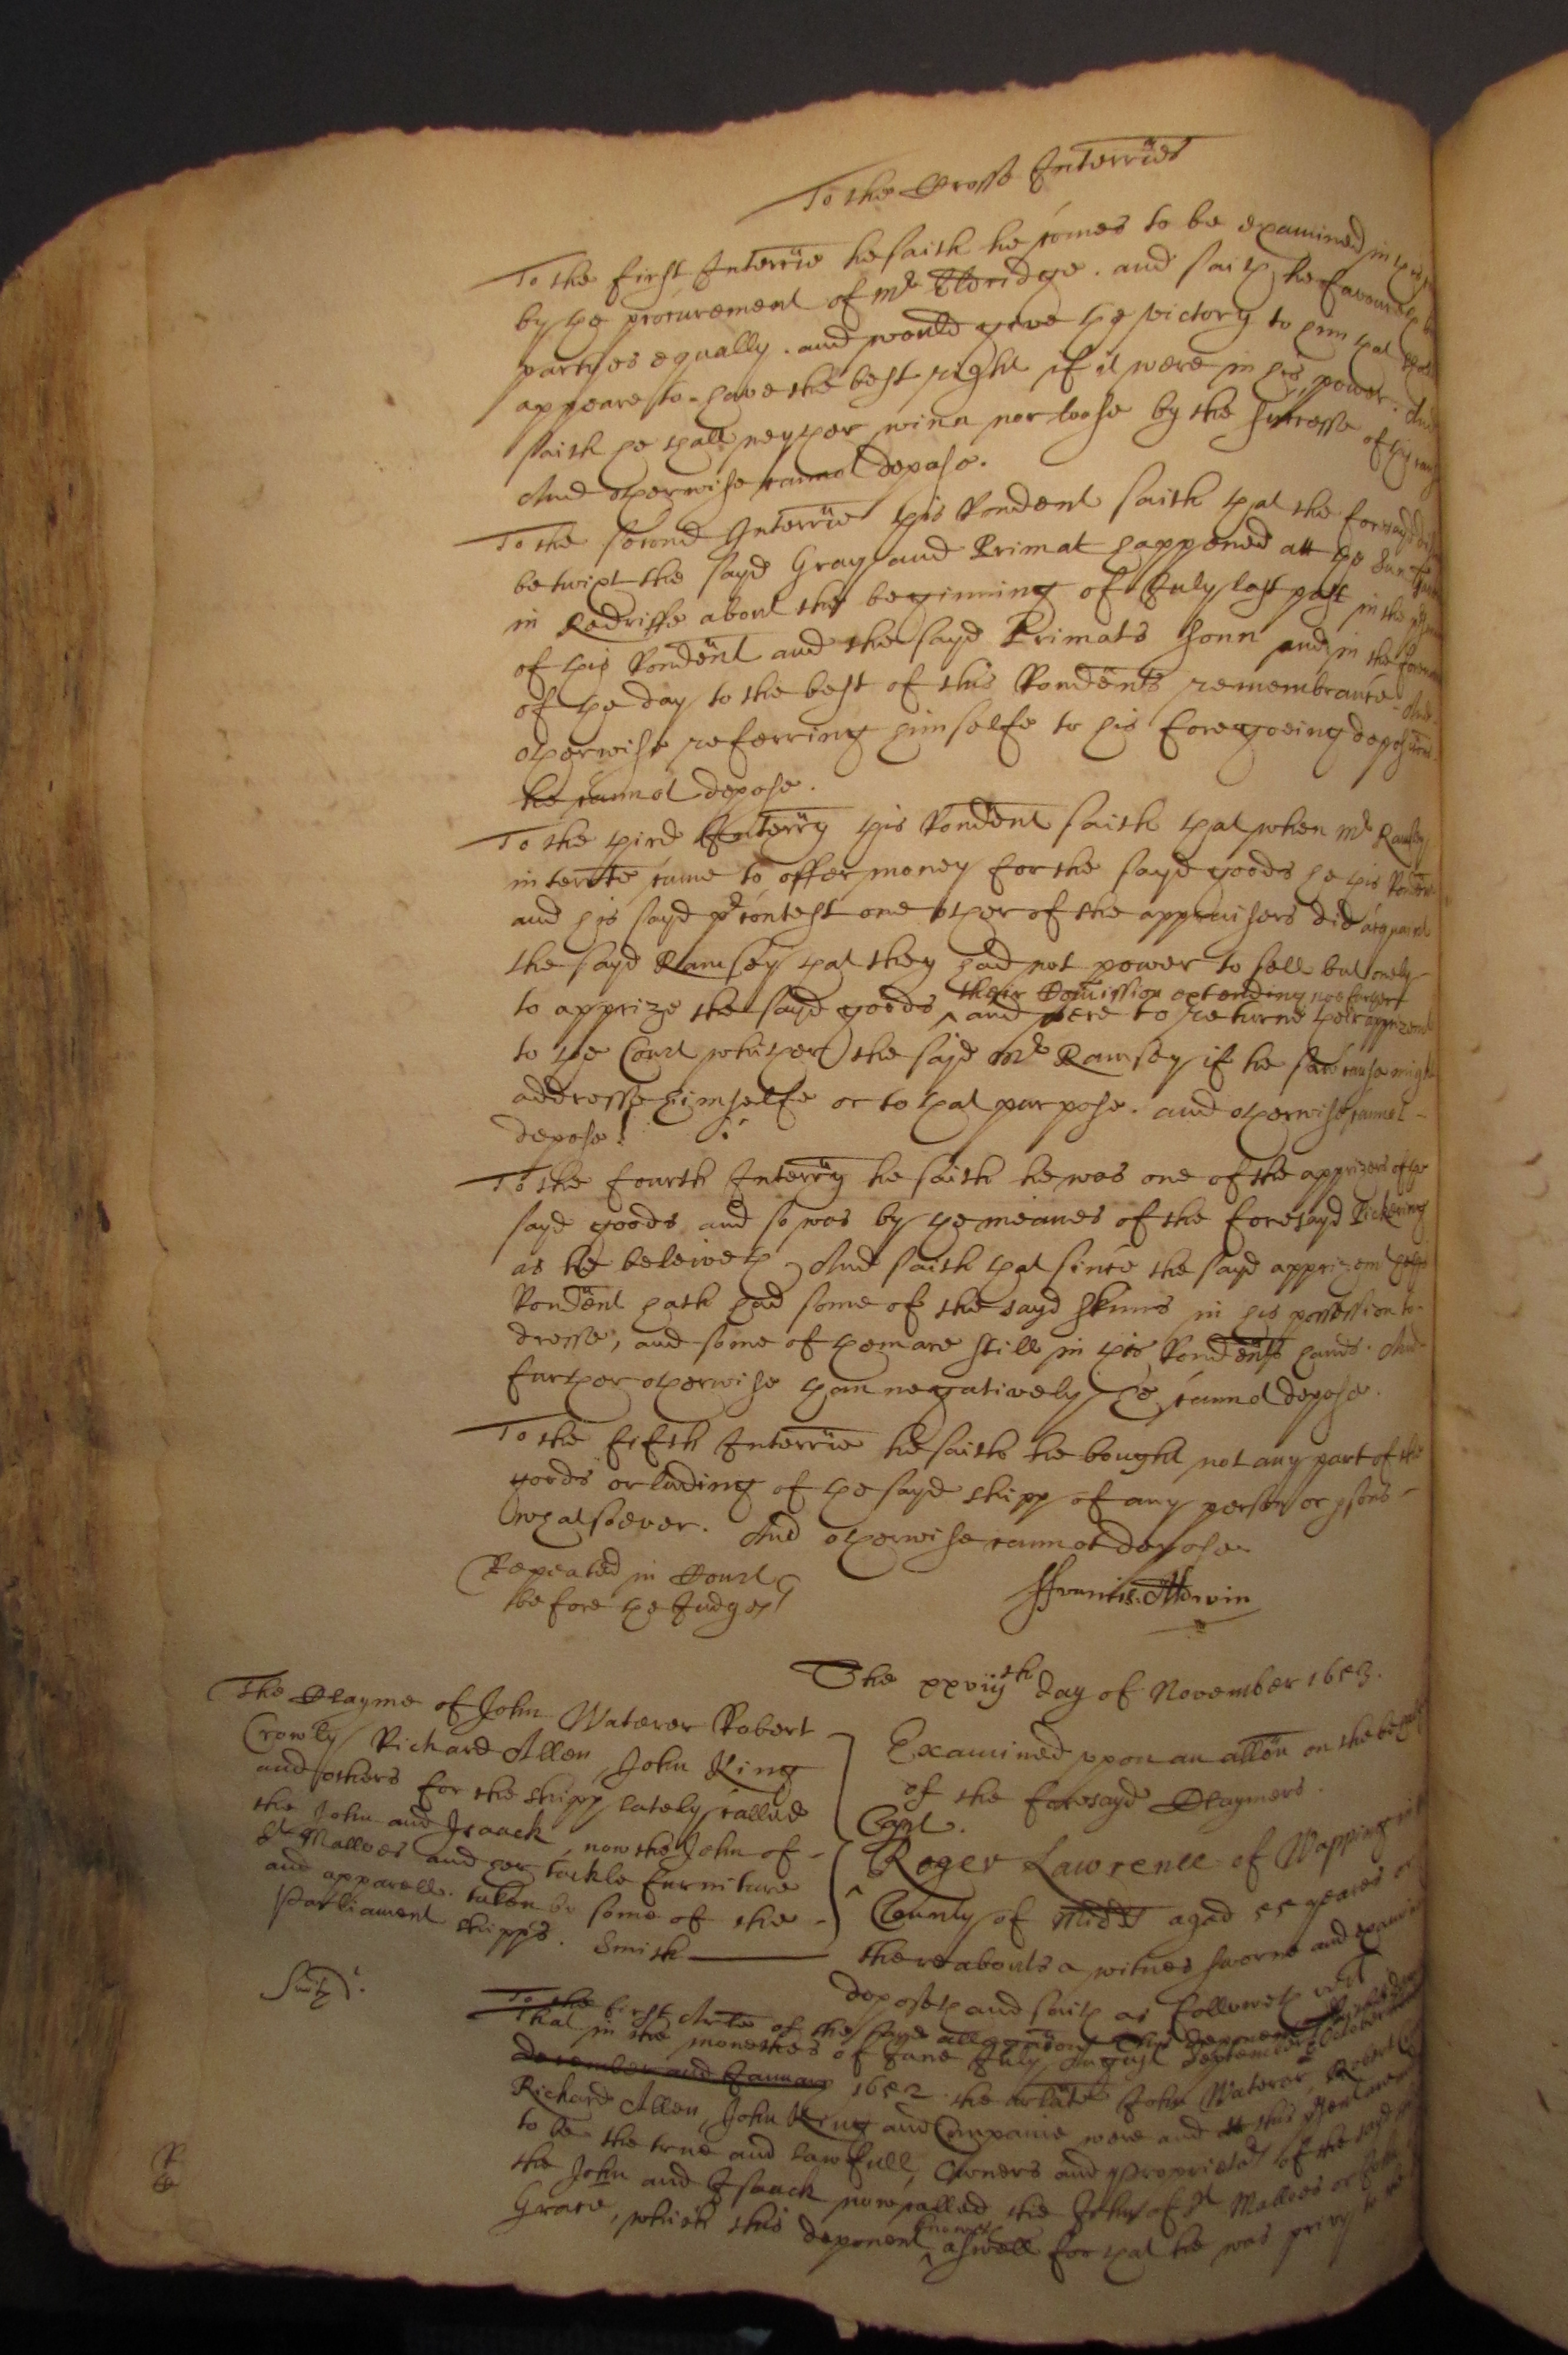 To the Crosse Interr̃ies
To the first Interr̃ie he saith he comes to be examined in
by the procurement of Mr Eldridge. and saith he favoureth
partyes equally. and would give the victory to him that
appeare to have the best right if it were in his power. And
saith he shall neyther winn nor loose by the successe of this
And otherwise cannot depose.
To the second Interr̃ie this Rondent saith that the foresayd
betwixt the sayd Gray and Primat happened att the
in Redriffe about the beginning of July last past in the
of this Rondẽnt and the sayd Primats sonn and in the
of the day to the best of this Rondẽnts remembrance. And
otherwise referring himselfe to his foregoeing
he cannot depose.
To the third Interr̃y this Rondẽnt saith that when Mr Ramsey
interrãte came to offer money for the sayd goods he this
and his sayd contest one other of the appraisers did acquaint
the sayd Ramsey that they had not power to sell but onely
to apprize the sayd goods ^ their Com̃ission extending noe further
and were to returne their
to the Court whither the sayd Mr Ramsey if he saw cause might
addresse himselfe or to that purpose. and otherwise cannot
depose.
To the fourth Interr̃y he saith he was one of the apprizers of the
sayd goods and so was by the meanes of the foresayd Pickering
as he beleiveth, And saith that since the sayd
Rondẽnt hath had some of the sayd skinns in his possession to
dresse, and some of them are still in this Rondẽnts hands. And
further otherwise than negatively he cannot depose.
To the fifth Interr̃ie he saith he bought not any part of the
goods or lading of the sayd shipp of any person or psons
whatsoever. And otherwise cannot depose
Repeated in Court
before the Judges
ffrancis
The xxviijth day of November 1653.
The Clayme of John Waterer Robert
Crowly Richard Allen, John King
and others for the shipp lately called
the John and Isaack, now the John of
St Malloes and her tackle furniture
and apparell. taken by some of the
Parliament shipps. Smith
Examined upon an allõn on the
of the foresayd Claymers.
Roger Lawrence of Wapping in
County of Midds aged 55 yeares or
thereabouts a witnes sworne and
deposeth and saith as followeth vizt
Smith
To the first Arle of the sayd allegation
That in the moneths of June July August September October
December and January 1652 the arlãte John Waterer, Robert
Richard Allen, John King and Companie were and
to be the true and lawfull Owners and Proprietors of the sayd
the John and Isaack now called the John of St Malloes or
Grace, which this deponent ^ knoweth aswell for that he was privy to